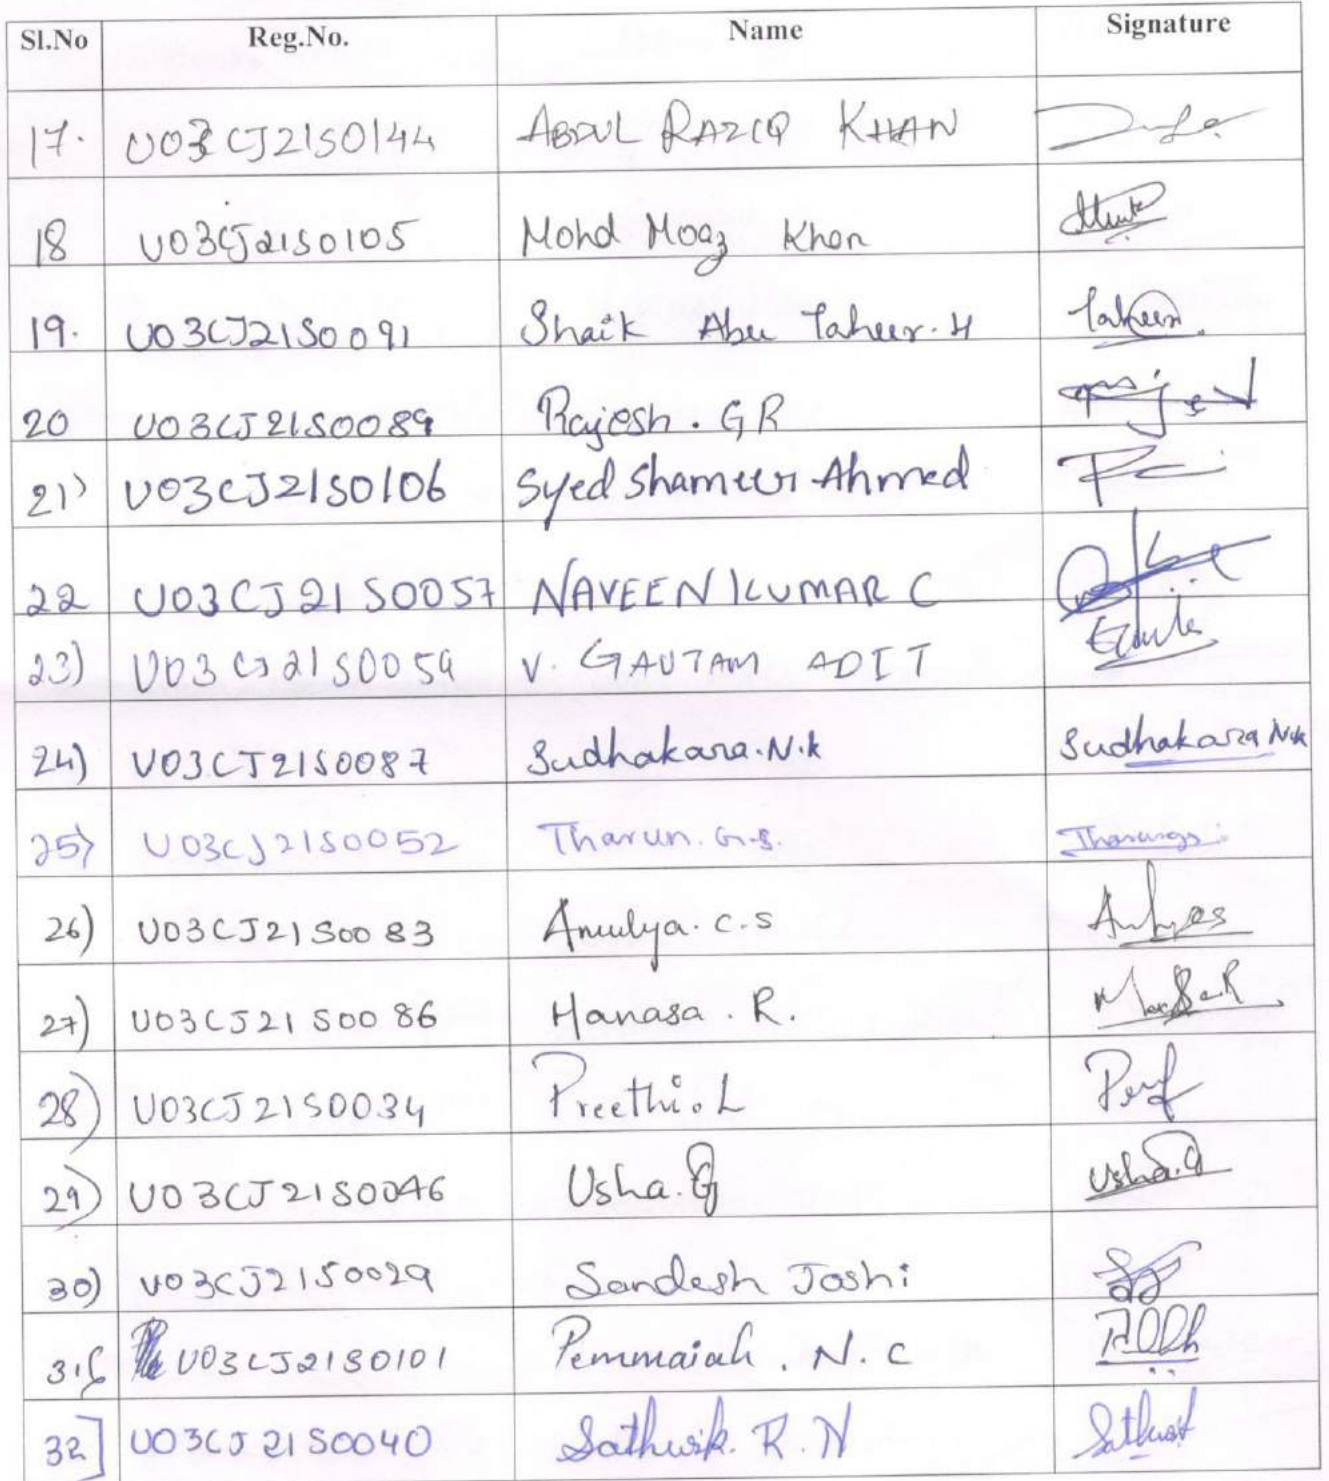 Sl.No Reg.No. Name Signature
17. U03CJ21S0144 ABDUL RAZIQ KHAN
18 U03CJ21S0105 Mohd Moaz Khan
19. U03CJ21S0091 Shaik Abu Taheer.H Taheer
20 U03CJ21S0089 Rajesh. G R
21) U03CJ21S0106 Syed Shameer Ahmed
22 U03CJ21S0057 NAVEEN KUMAR C
23) U03CJ21S0059 V. GAUTAM ADIT
24) U03CJ21S0087 Sudhakara.N.k Sudhakara N.k
25) U03CJ21S0052 Tharun. G.S. Tharungs
26) U03CJ21S0083 Amulya. C.S
27) U03CJ21S0086 Manasa. R.
28) U03CJ21S0034 Preethi. L
29) U03CJ21S0046 Usha. G Usha.G
30) U03CJ21S0029 Sandesh Joshi
31) U03CJ21S0101 Pemmaiah. N. C
32] U03CJ21S0040 Sathwik. R. N Sathwik